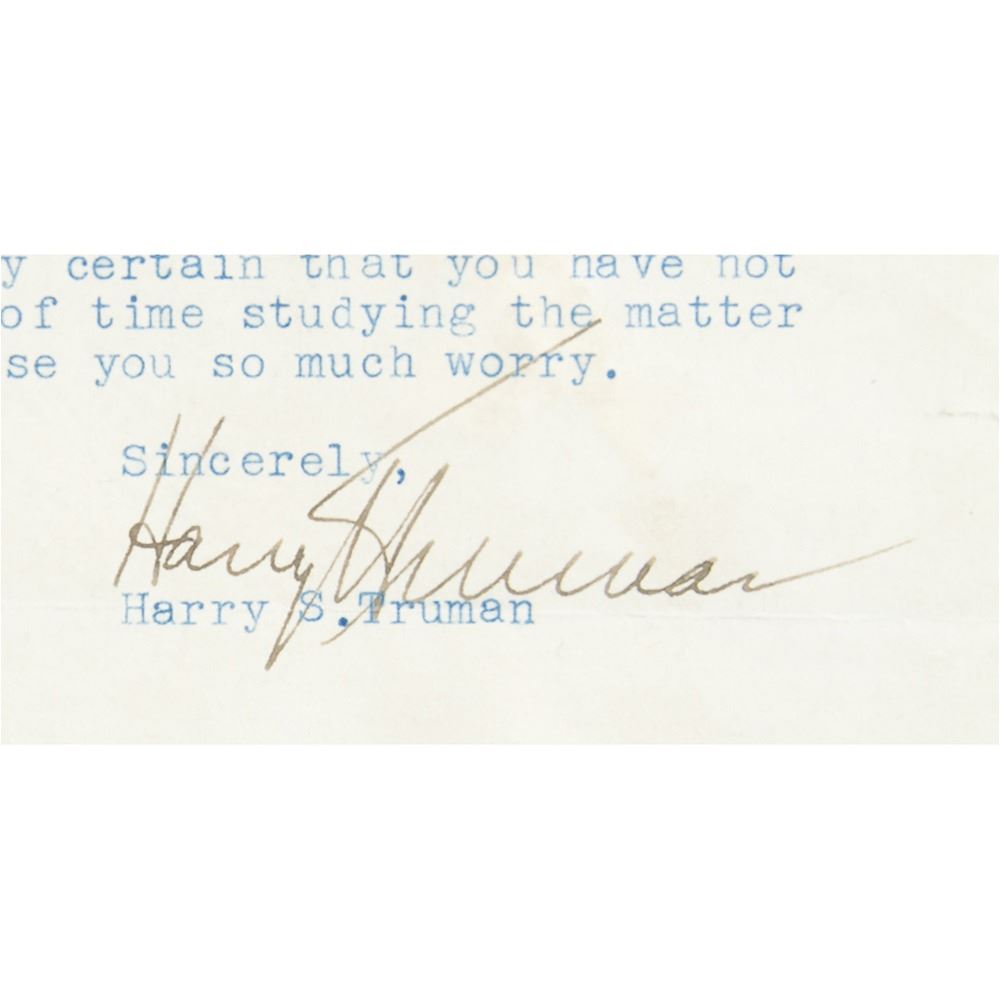 y certain that you have not
of time studying the matter
se you so much worry.
Sincerely,
Harry S Truman
Harry S.Truman